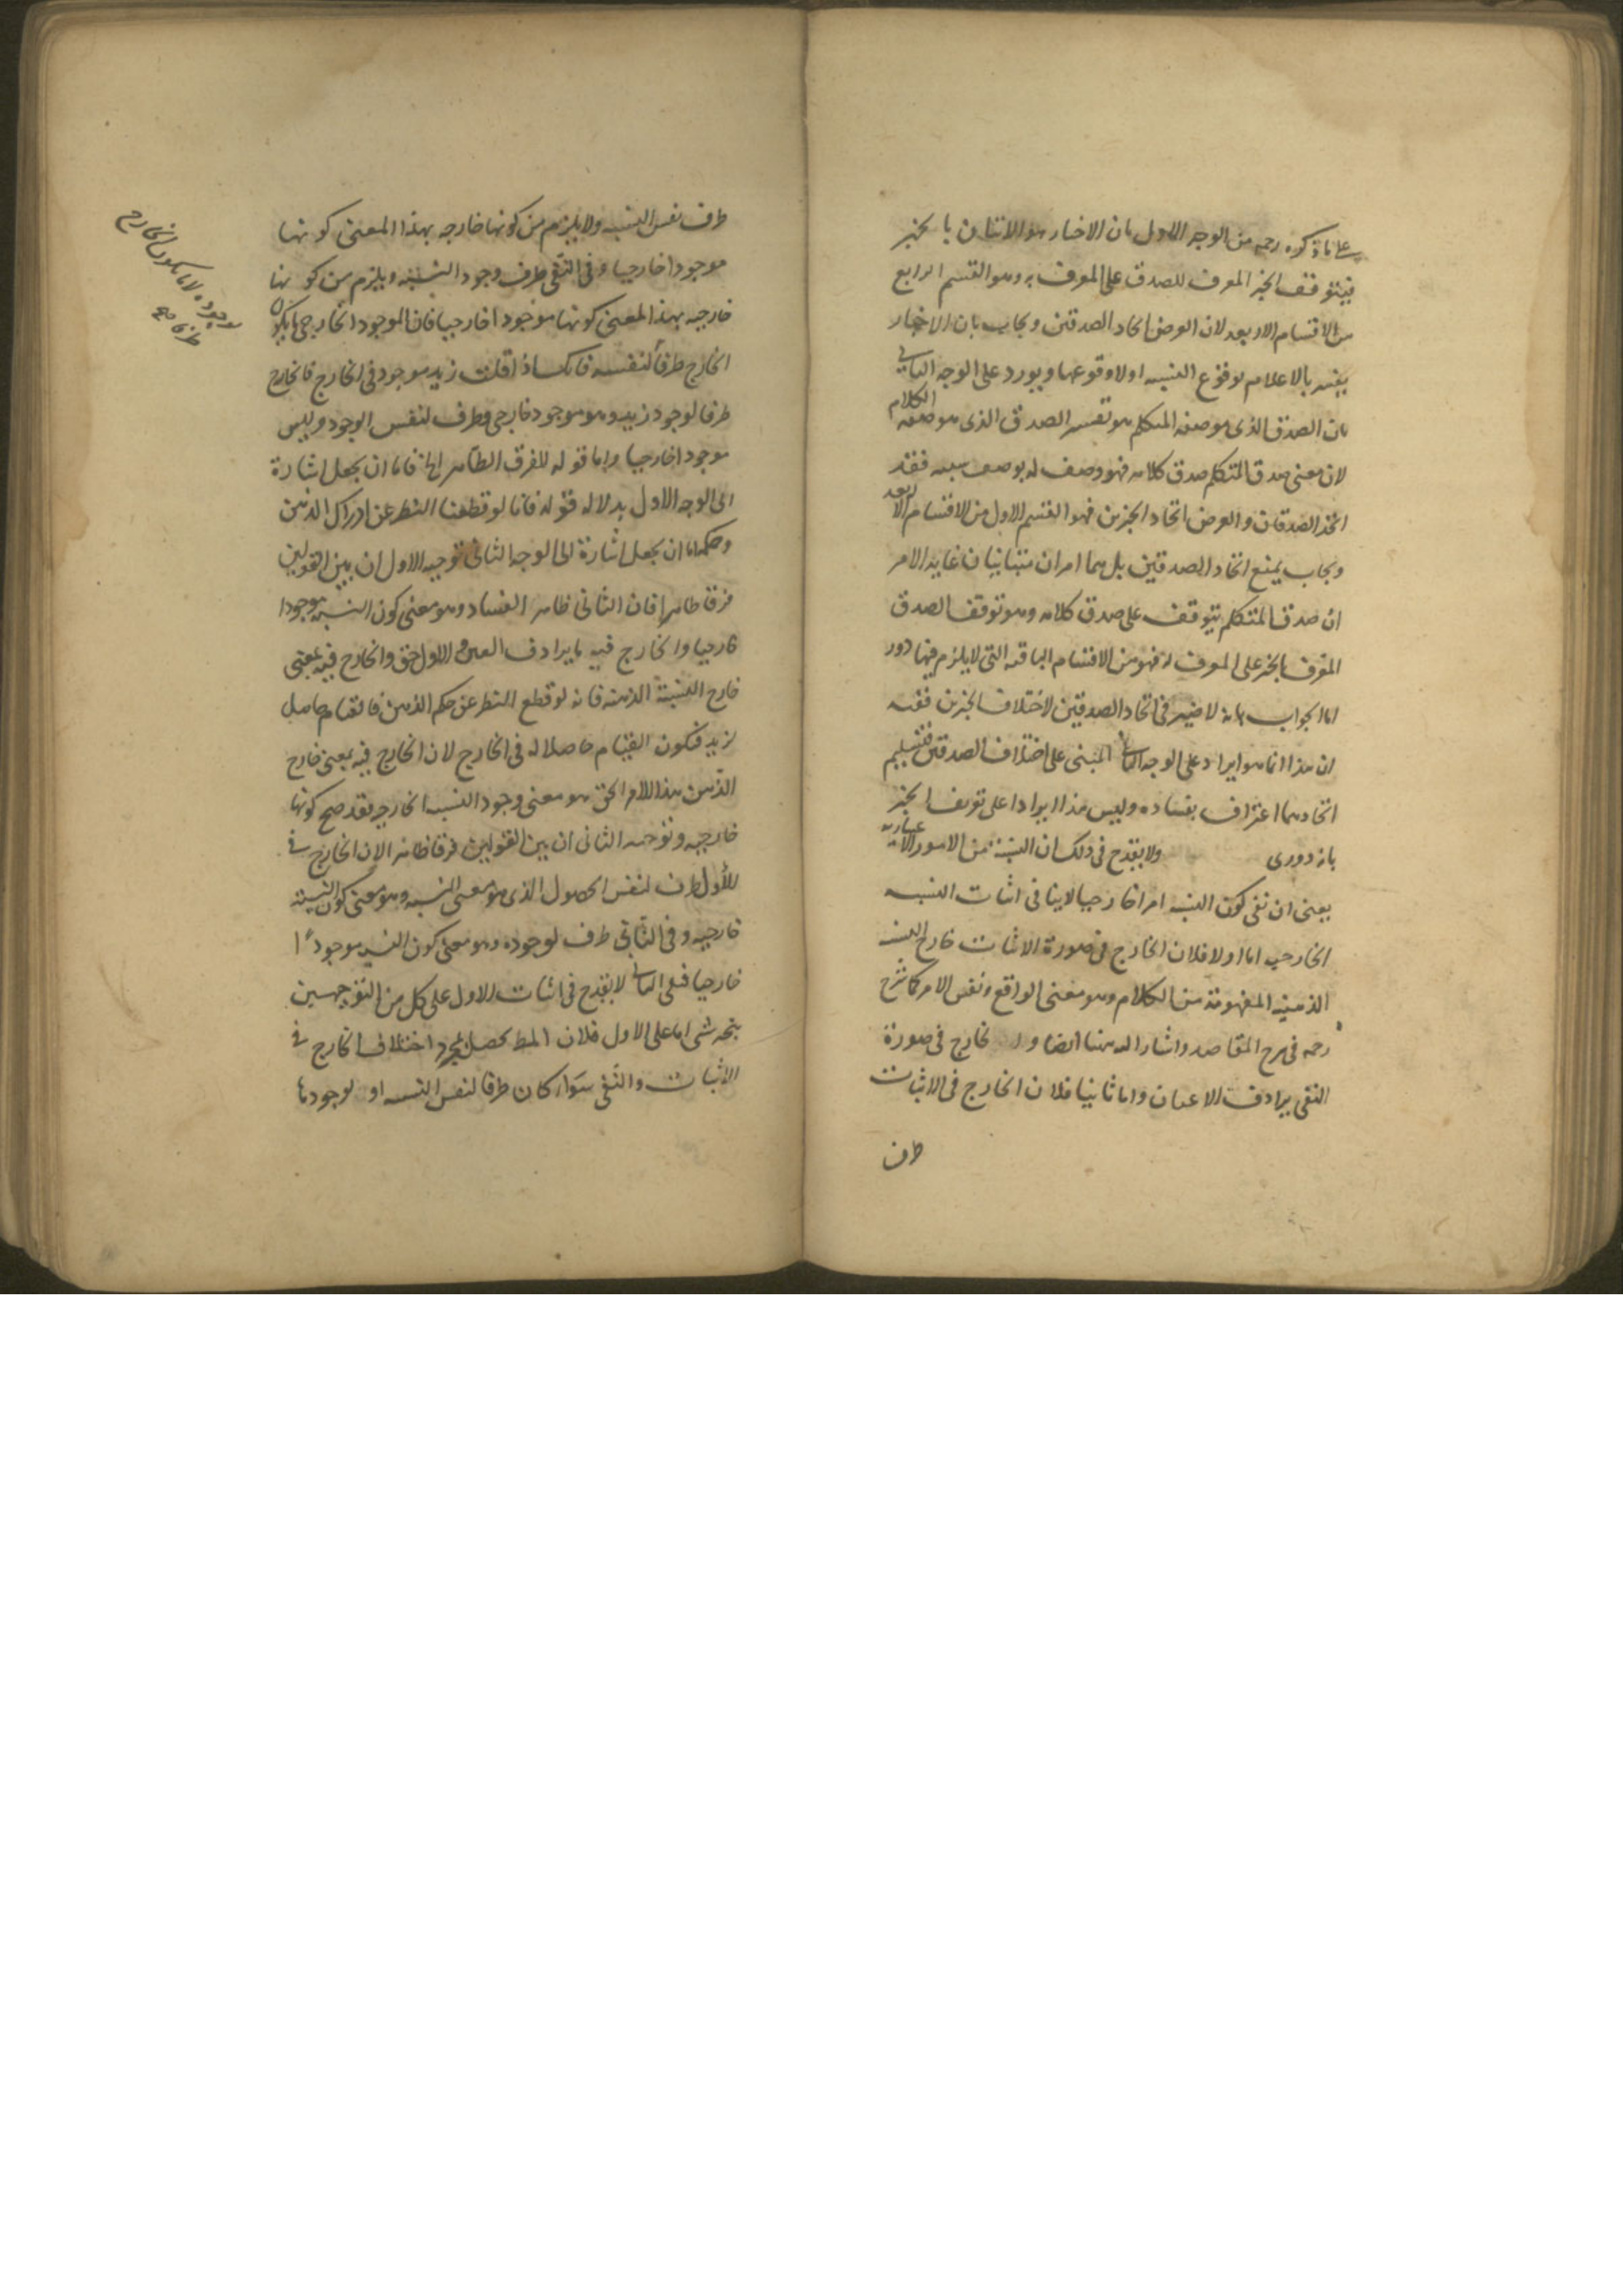 على ما ذكره رحمه من الوجه الاول بان الاخبار هو الاتيان بالخبر
فيتوقف الخبر المعرف للصدق على المعرف به وهو القسم الرابع
من الاقسام الاربعه لان الغرض اتحاد الصدقين ويجاب بان الاخبار
يفسر بالاعلام بوقوع النسبه او لا وقوعها ويورد على الوجه الثاني
بان الصدق الذى هو صفه المتكلم هو تفسير الصدق الذى هو صفه الكلام
لان معنى صدق المتكلم صدق كلامه فهو وصف له بوصف سببه فقد
اتحد الصدقان والغرض اتحاد الخبرين فهو القسم الاول من الاقسام الاربعه
ويجاب بمنع اتحاد الصدقين بل هما امران متباينان غايه الامر
ان صدق المتكلم يتوقف على صدق كلامه وهو توقف الصدق
المعرف بالخبر على المعرف له فهو من الاقسام الباقيه التى لا يلزم فيها دور
اما الجواب بانه لا ضير فى اتحاد الصدقين لاختلاف الخبرين ففيه
ان هذا انما هو ايراد على الوجه الثاني المبنى على اختلاف الصدقين فتسليم
اتحادهما اعتراف بفساده وليس هذا ايرادا على تعريف الخبر
بانه دورى ولا يقدح فى ذلك ان النسبه من الامور الاعتباريه
يعنى ان نفى كون النسبه امرا خارجيا لا ينافى اثبات النسبه
الخارجيه اما اولا فلان الخارج فى صورة الاثبات خارج النسبه
الذهنيه المفهومة من الكلام وهو معنى الواقع ونفس الامر كما شرح
رحمه فى شرح المقاصد واشار اليه ههنا ايضا و الخارج فى صورة
النفى يرادف الاعيان واما ثانيا فلان الخارج فى الاثبات
ظرف
ظرف نفس النسبه ولا يلزم من كونها خارجيه بهذا المعنى كونها
موجودا خارجيا وفى النفى ظرف وجود النسبه ويلزم من كونها
خارجيه بهذا المعنى كونها موجودا خارجيا فان الموجود الخارجى ما يكون
الخارج ظرفا لنفسه فانك اذا قلت زيد موجود فى الخارج فالخارج
ظرفا لوجود زيد وهو موجود خارجى وظرف لنفس الوجود وليس
موجودا خارجيا واما قوله للفرق الظاهر الخ فاما ان يجعل اشارة
الى الوجه الاول بدلاله قوله فانا لو قطعنا النظر عن ادراك الذهن
وحكمه اما ان يجعل اشارة الى الوجه الثانى توجيه الاول ان بين القولين
فرقا ظاهرا فان الثانى ظاهر الفساد وهو معنى كون النسبه موجودا
خارجيا والخارج فيه ما يرادف العين والاول حق والخارج فيه بمعنى
خارج النسبة الذهنيه فانه لو قطع النظر عن حكم الذهن فالقيام حاصل
لزيد فيكون القيام حاصلا له فى الخارج لان الخارج فيه بمعنى خارج
الذهن هذا الامر الحق هو معنى وجود النسبه الخارجيه فقد صح كونها
خارجيه وتوجيه الثانى ان بين القولين فرقا ظاهرا لان الخارج فى
الاول ظرف لنفس الحصول الذى هو معنى النسبه وهو معنى كون النسبة
خارجيه وفى الثانى ظرف لوجوده وهو معنى كون النسبه موجودا
خارجيا فنفى الثاني لا يقدح فى اثبات الاول على كل من التوجيهين
يتجه شى اما على الاول فلان المط يحصل بمجرد اختلاف الخارج فى
الاثبات والنفى سواء كان ظرفا لنفس النسبه او لوجودها
وجوده لا ما يكون الخارج
ظرفا صح